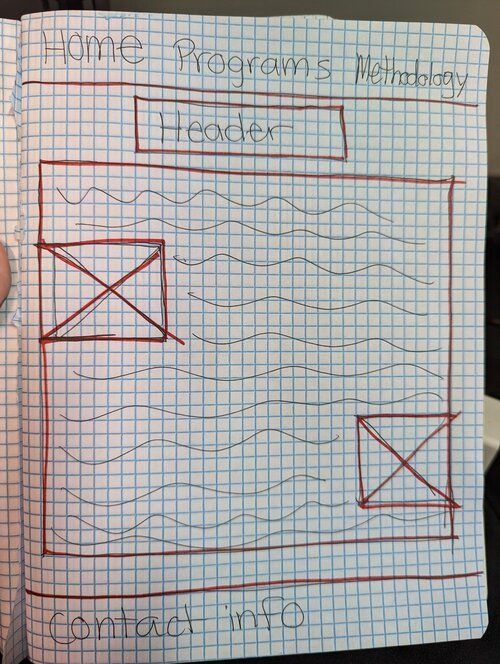 Home Programs Methodology
Header
Contact info